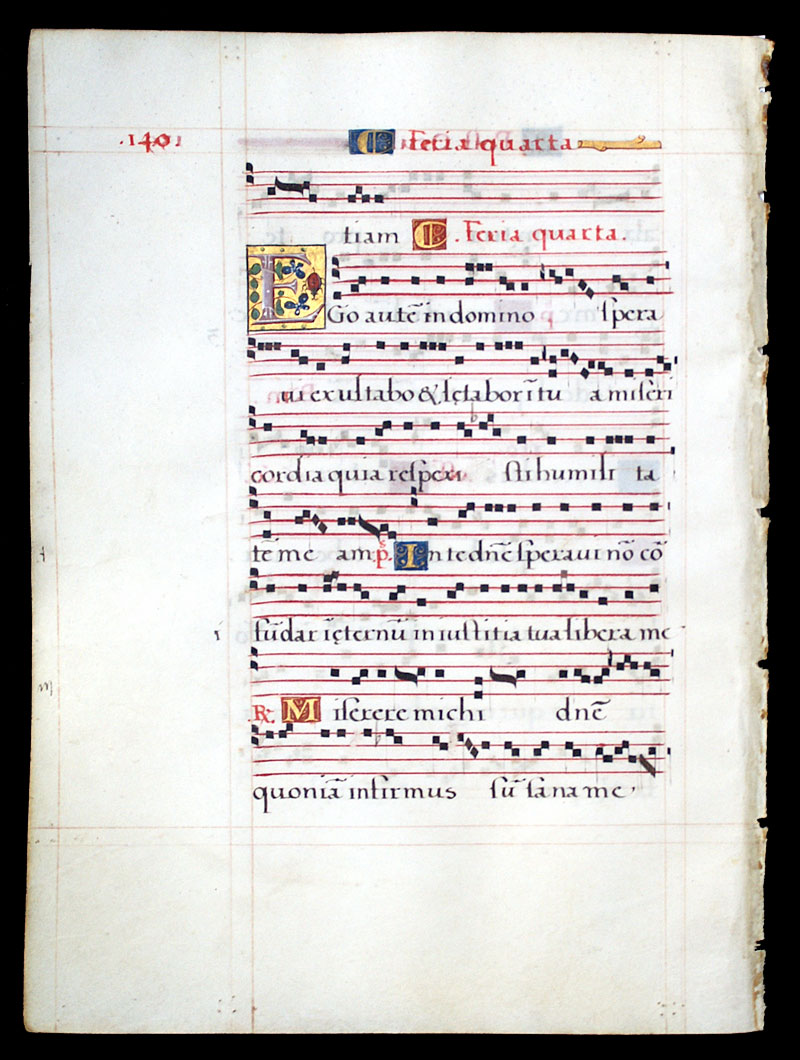 .140. Feria quarta
tiam . Feria quarta.
EGo autē in domino spera
ui exultabo & lętabor ī tu a miseri
cordia quia respexi sti humili ta
tē me am. ps. In te dn̄e speraui nō cō
fūdar ī ęternū in iustitia tua libera me
R. Miserere michi dn̄e
quoniā infirmus sū sana me.